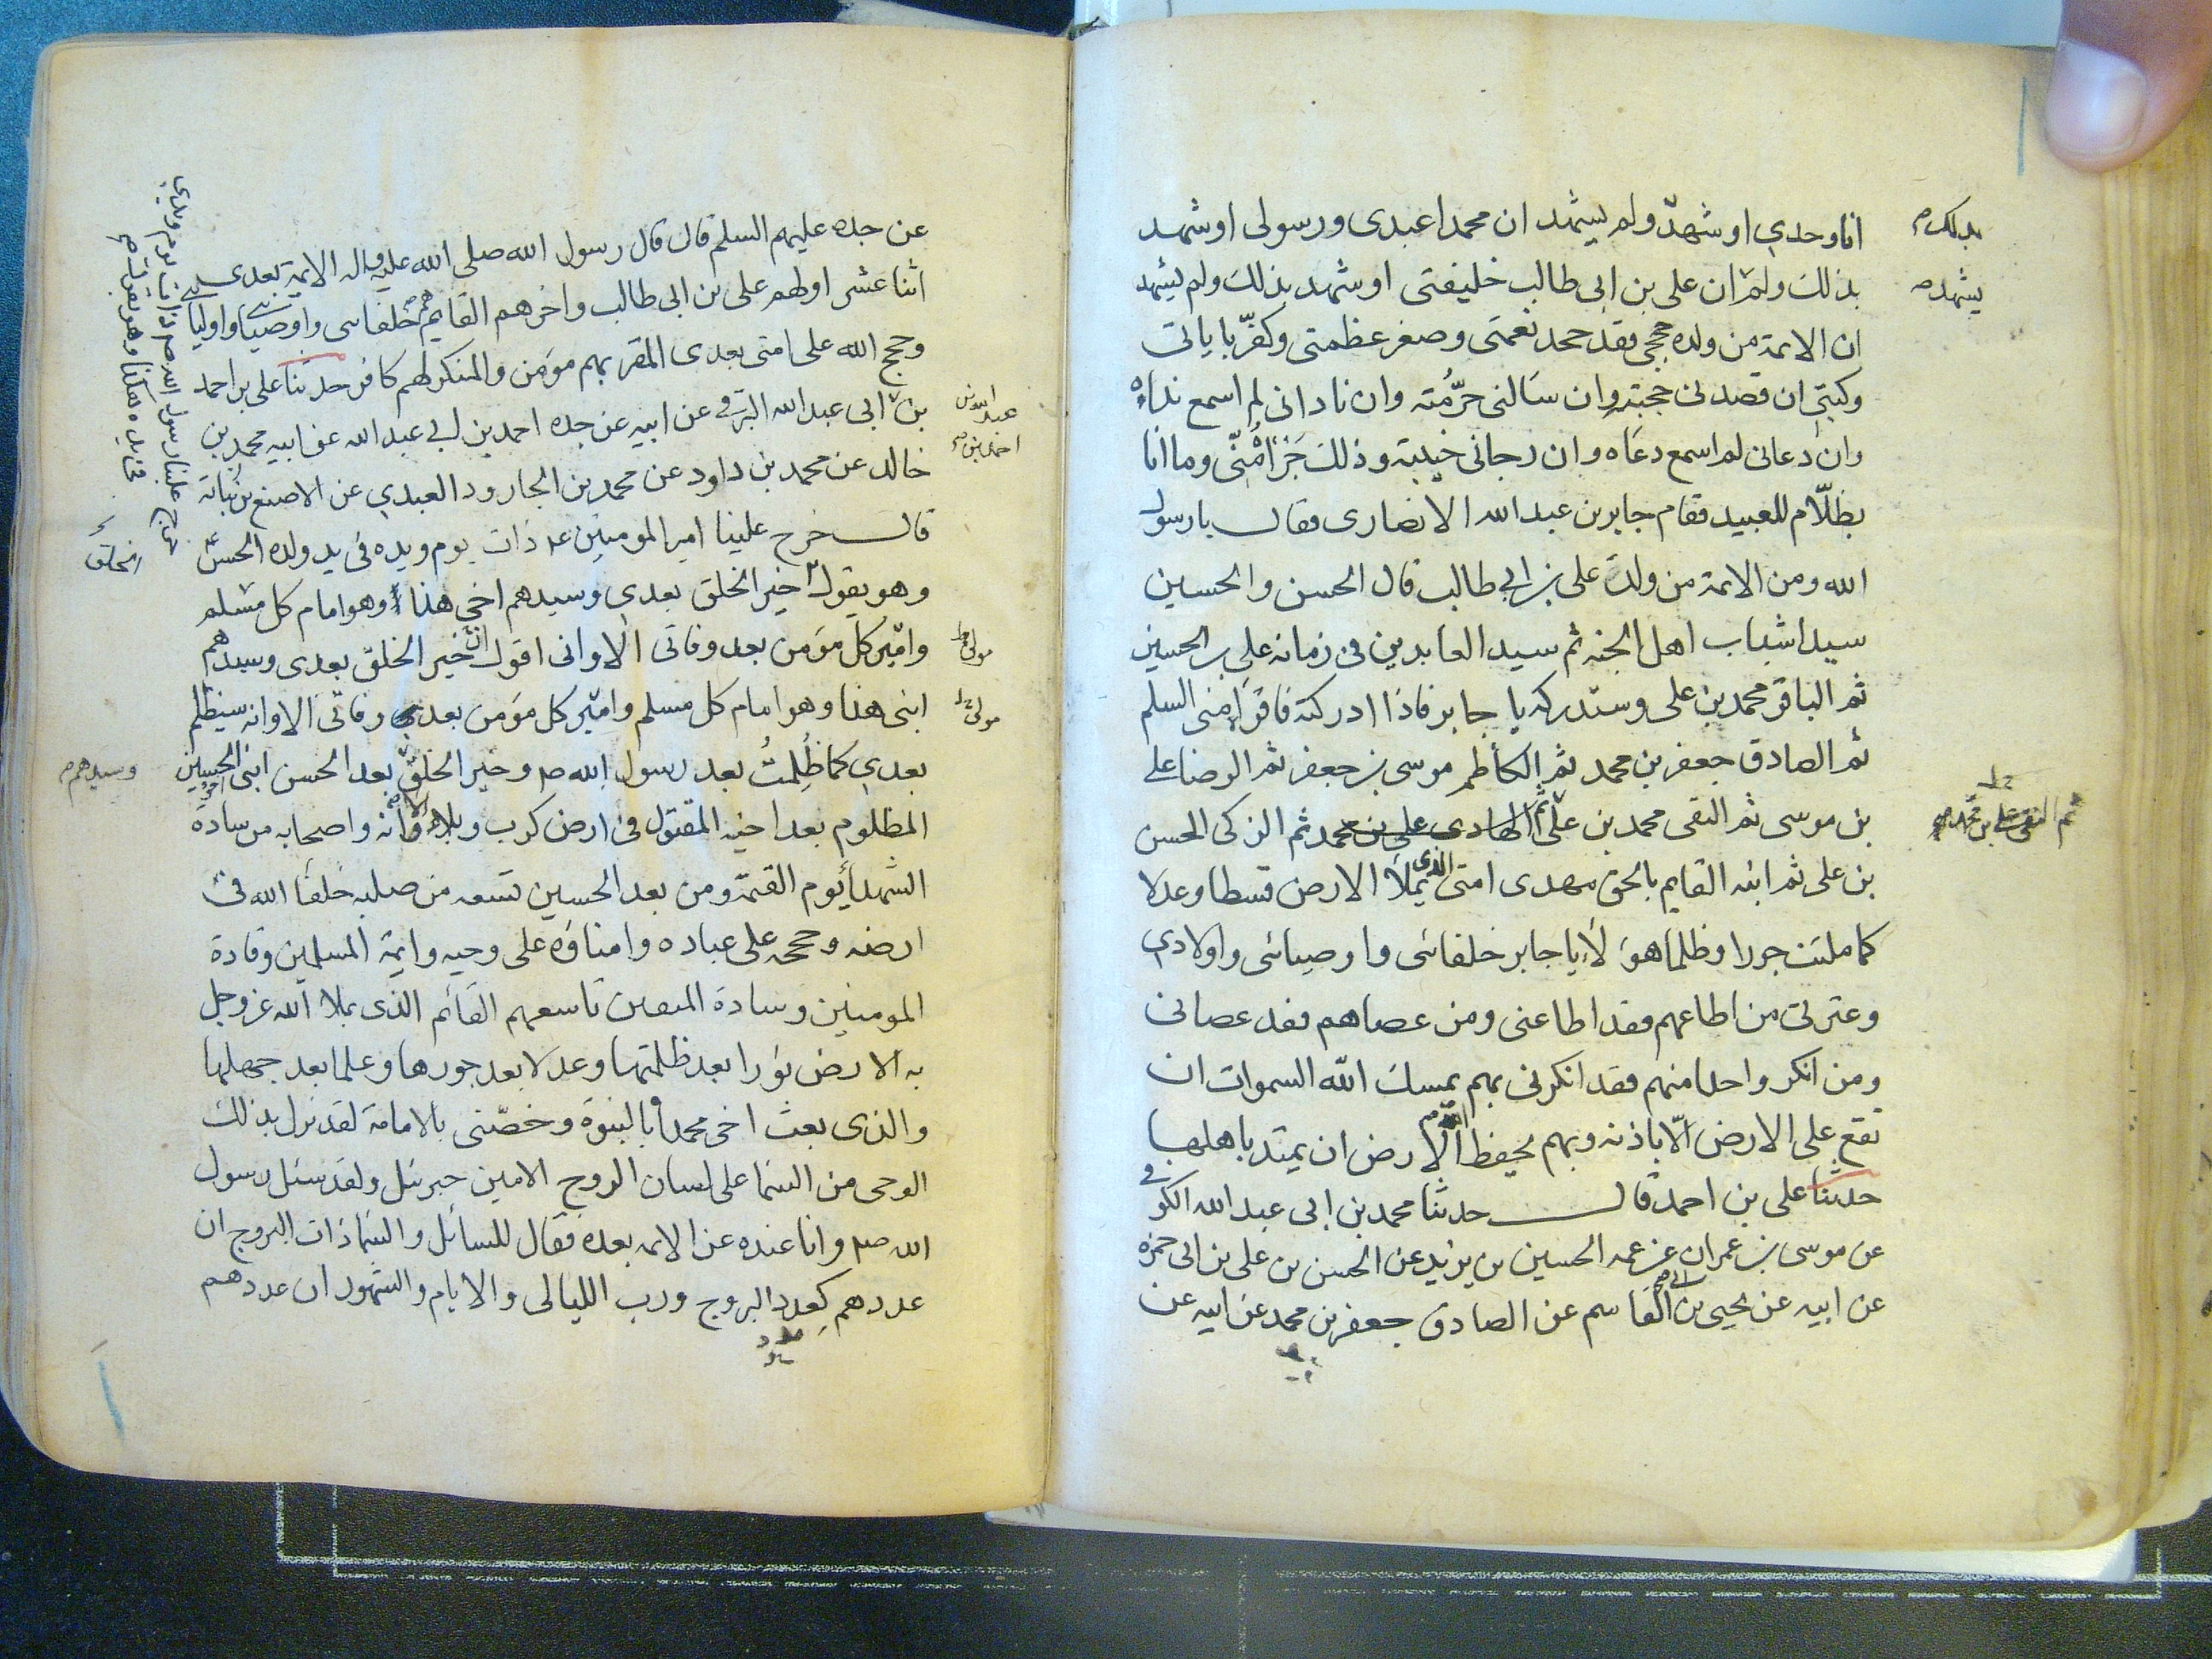 انا وحدي او شهد ولم يشهد ان محمدا عبدى ورسولى او شهد
بذلك ولم ان على بن ابى طالب خليفتى او شهد بذلك ولم يشهد
ان الائمة من ولده حججى فقد جحد نعمتى وصغر عظمتى وكفر باياتى
وكتبى ان قصدنى حجبته وان سألنى حرّمُته وان نادانى لم اسمع نداءه
وان دعانى لم اسمع دعاه وان رجانى خيبته وذلك جزاؤه منّى وما انا
بظلّام للعبيد فقام جابر بن عبد الله الانصارى فقال يا رسول
الله ومن الائمة من ولد على بن ابي طالب قال الحسن والحسين
سيدا شباب اهل الجنه ثم سيد العابدين فى زمانه على بن الحسين
ثم الباقر محمد بن على وستدركه يا جابر فاذا ادركته فاقراه منى السلم
ثم الصادق جعفر بن محمد ثم الكاظم موسى بن جعفر ثم الرضا على
بن موسى ثم التقى محمد بن على ثم الهادى على بن محمد ثم الزكى الحسن
بن على ثم ابنه القايم بالحق مهدى امتى الذى يملأ الارض قسطا وعدلا
كما ملئت جورا وظلما هؤلاء يا جابر خلفائى واوصيائى واولادى
وعترتى من اطاعهم فقد اطاعنى ومن عصاهم فقد عصانى
ومن انكر واحدا منهم فقد انكرنى بهم يمسك الله السموات ان
تقع على الارض الّا باذنه وبهم يحفظ الله الارض ان يمتد باهلها
حدثنا على بن احمد قال حدثنا محمد بن ابى عبد الله الكوفى
عن موسى بن عمران عن عمه الحسين بن يزيد عن الحسن بن على بن ابى حمزه
عن ابيه عن يحيى بن ابى القاسم عن الصادق جعفر بن محمد عن ابيه عن
بذلك
يشهد
ثم النقى على بن محمد
عن جده عليهم السلم قال قال رسول الله صلى الله عليه واله الايمة بعدى
اثنا عشر اولهم على بن ابى طالب واخرهم القايم هم خلفاى واوصياى واولياى
وحجج الله على امتى بعدى المقر بهم مؤمن والمنكر لهم كافر حدثنا على بن احمد
بن ابى عبد الله البرقى عن ابيه عن جده احمد بن ابي عبد الله عن ابيه محمد بن
خالد عن محمد بن داود عن محمد بن الجارود العبدي عن الاصبغ بن نباتة
قال خرج علينا امير المومنين ع ذات يوم ويده فى يد ولده الحسن ع
وهو يقول خير الخلق بعدى وسيدهم اخى هذا وهو امام كل مسلم
وامير كل مؤمن بعد وفاتى الا وانى اقول ان خير الخلق بعدى وسيدهم
ابنى هذا وهو امام كل مسلم وامير كل مؤمن بعد وفاتى الا وانه سيظلم
بعدي كما ظُلِمتُ بعد رسول الله ص وخير الخلق بعد الحسن ابنى الحسين
المظلوم بعد اخيه المقتول فى ارض كرب وبلا الا وانه واصحابه من سادة
الشهدا يوم القيمة ومن بعد الحسين تسعه من صلبه خلفا الله فى
ارضه وحججه على عباده وامناؤه على وحيه وايمة المسلمين وقادة
المومنين وسادة المتقين تاسعهم القائم الذى يملا الله عز وجل
به الارض نورا بعد ظلمتها وعدلا بعد جورها وعلما بعد جهلها
والذى بعث اخى محمدا بالنبوة وخصّنى بالامامة لقد نزل بذلك
الوحى من السما على لسان الروح الامين جبرئيل ولقد سئل رسول
الله ص وانا عنده عن الائمه بعده فقال للسائل والسما ذات البروج ان
عددهم كعدد البروج ورب الليالى والايام والشهور ان عددهم
عبد الله بن
احمد بن
مولى
مولى
وسيدهم
الخلق
خرج علينا رسول الله ص ذات يوم ويدي
فى يده هكذا وهو يقول